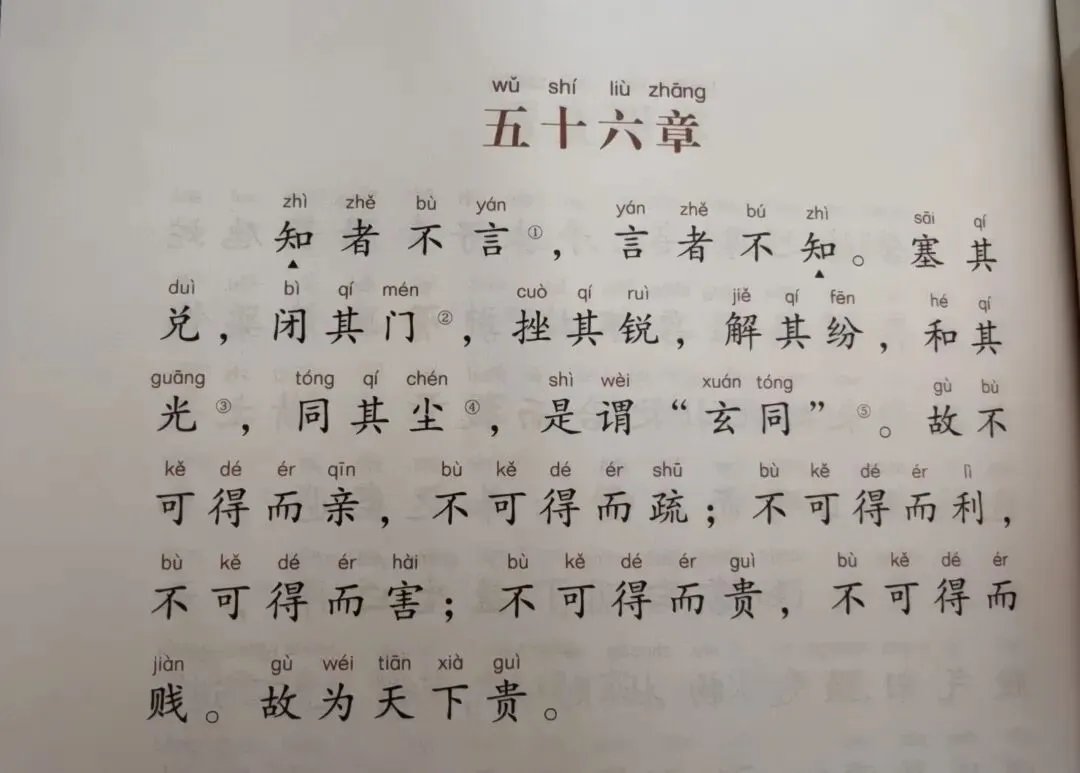 wǔ shí liù zhāng
五十六章
zhì zhě bù yán yán zhě bú zhì sāi qí
知者不言①，言者不知。塞其
duì bì qí mén cuò qí ruì jiě qí fēn hé qí
兑，闭其门②，挫其锐，解其纷，和其
guāng tóng qí chén shì wèi xuán tóng gù bù
光③，同其尘④，是谓“玄同”⑤。故不
kě dé ér qīn bù kě dé ér shū bù kě dé ér lì
可得而亲，不可得而疏；不可得而利，
bù kě dé ér hài bù kě dé ér guì bù kě dé ér
不可得而害；不可得而贵，不可得而
jiàn gù wéi tiān xià guì
贱。故为天下贵。